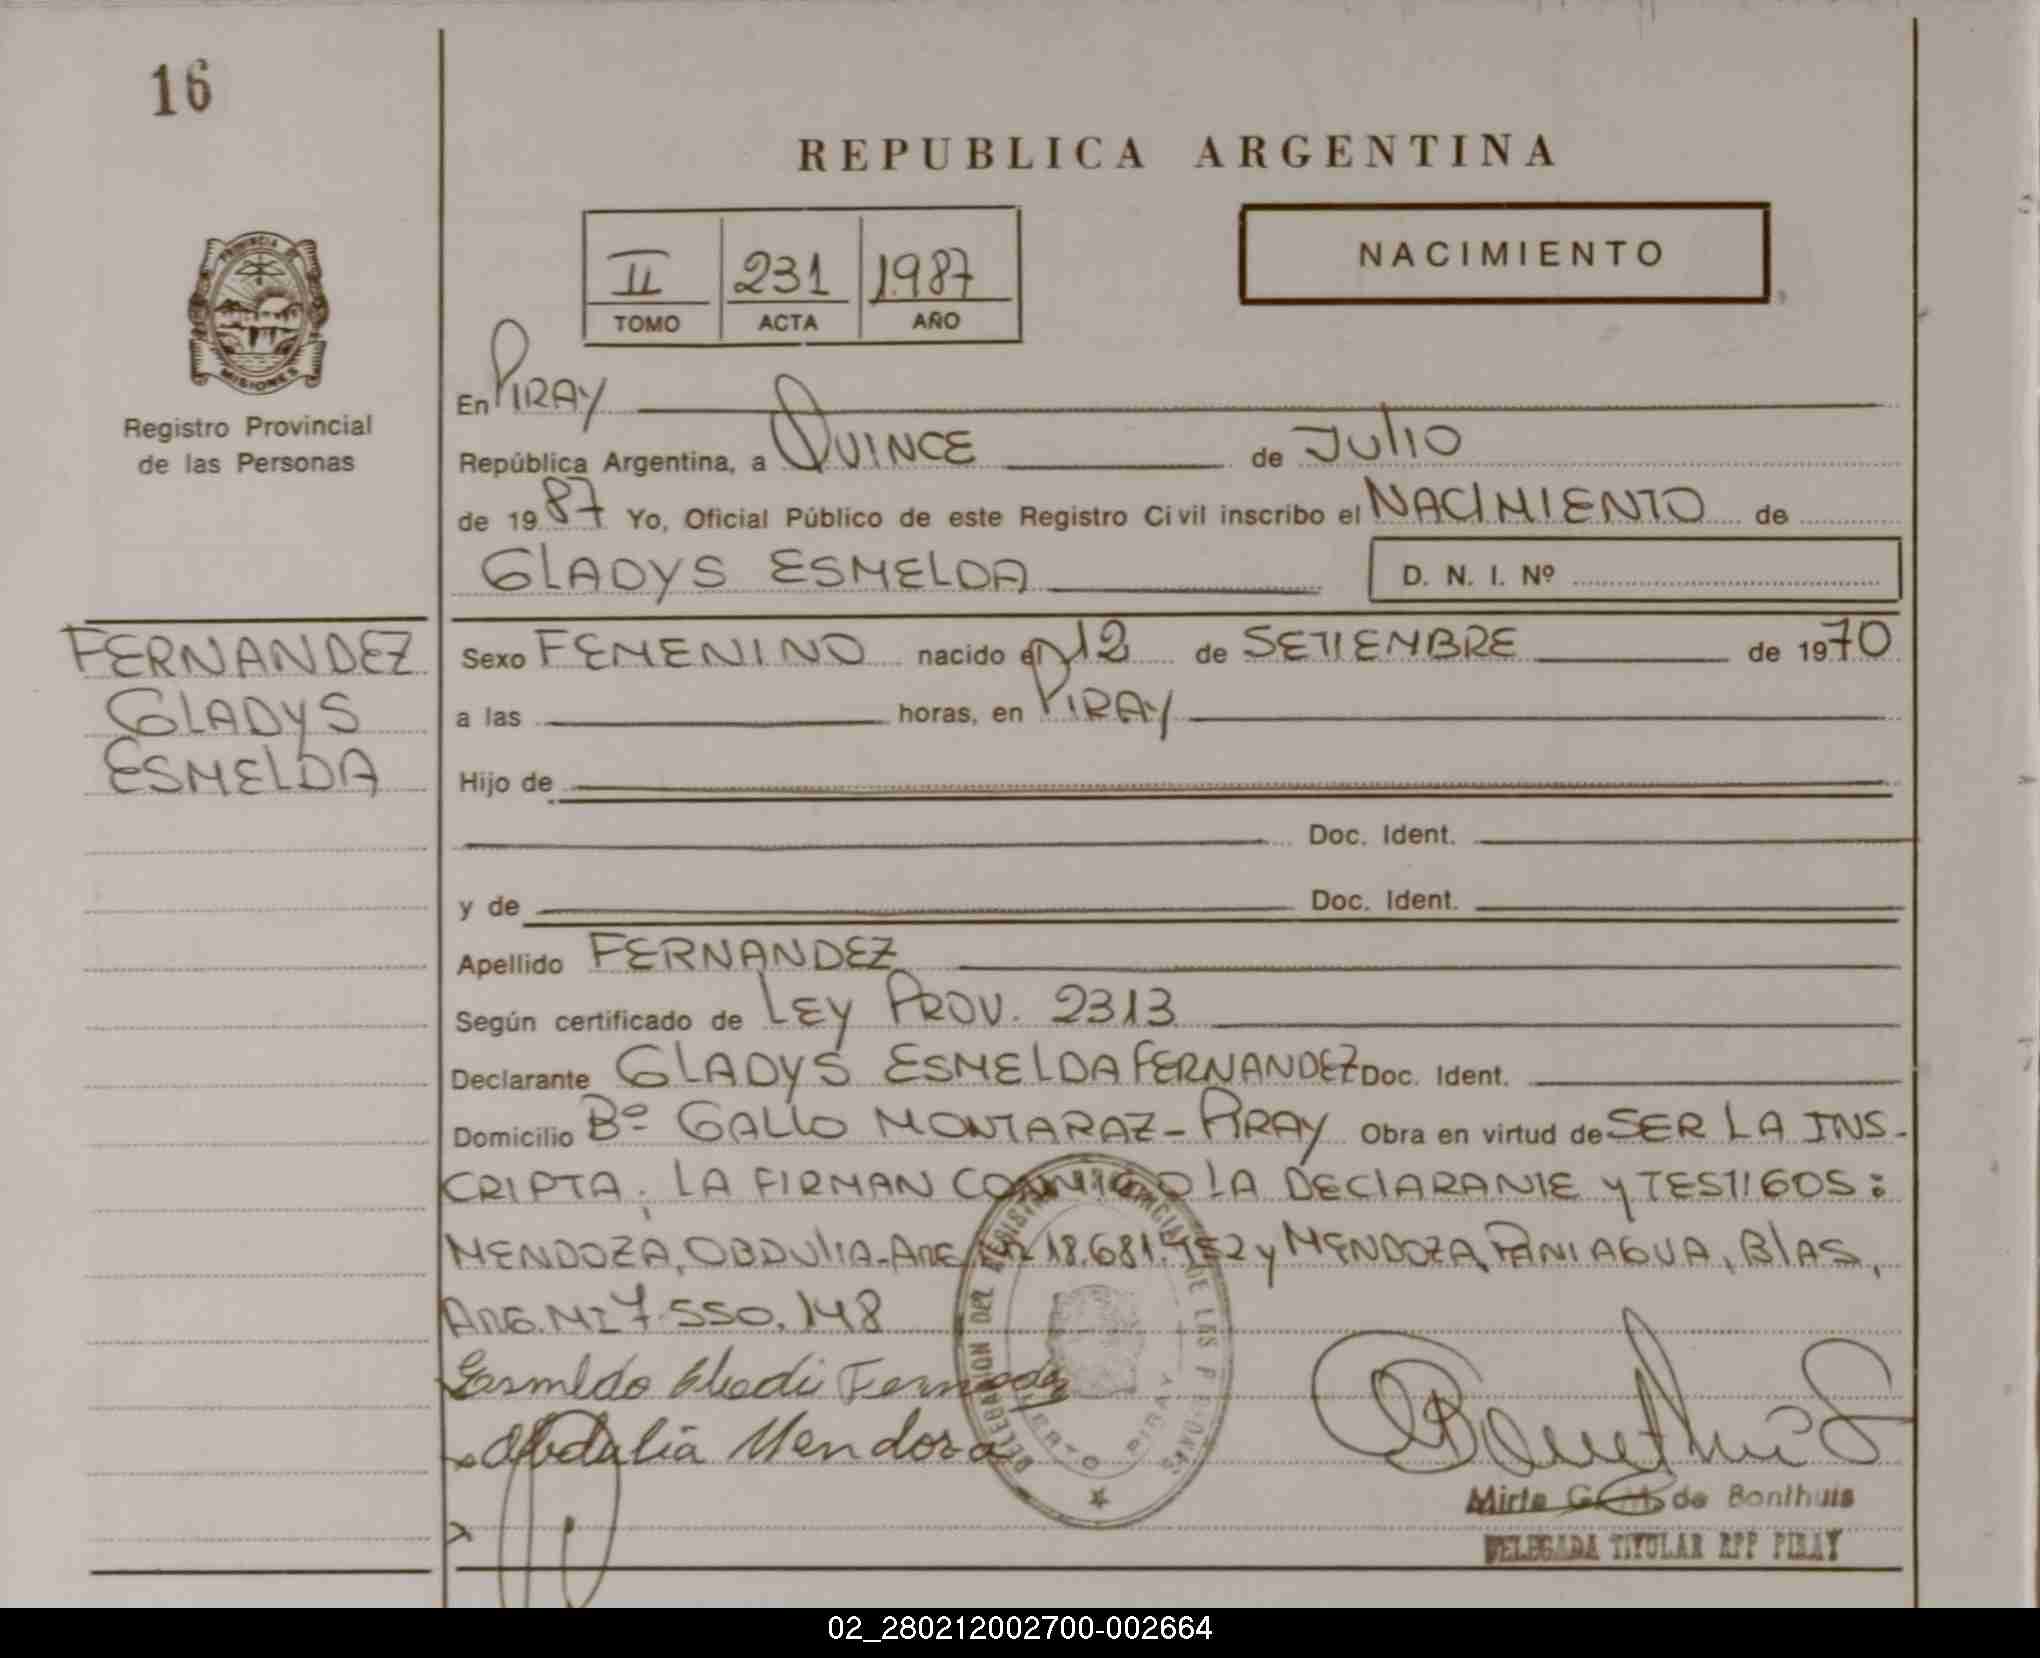 16
REPUBLICA ARGENTINA
PROVINCIA DE
MISIONES
Registro Provincial
de las Personas
II 231 1.987
TOMO ACTA AÑO
NACIMIENTO
En PIRAY
República Argentina, a QUINCE de JULIO
de 1987 Yo, Oficial Público de este Registro Civil inscribo el NACIMIENTO de
GLADYS ESMELDA D. N. I. Nº
FERNANDEZ
GLADYS
ESMELDA
Sexo FEMENINO nacido el 12 de SETIEMBRE de 1970
a las horas, en PIRAY
Hijo de
Doc. Ident.
y de Doc. Ident.
Apellido FERNANDEZ
Según certificado de LEY PROV. 2313
Declarante GLADYS ESMELDA FERNANDEZ Doc. Ident.
Domicilio Bº GALLO MONTARAZ - PIRAY Obra en virtud de SER LA INS-
CRIPTA; LA FIRMAN CONMIGO LA DECLARANTE y TESTIGOS:
MENDOZA, OBDULIA - ARG 18.681. y MENDOZA PANIAGUA, BLAS,
ARG. MI 7.550.148
Fernandez
Obdulia Mendoza
DELEGACION DEL REGISTRO PROVINCIAL DE LAS PERSONAS
PUERTO PIRAY
Mirta de Bonthuis
DELEGADA TITULAR RPP PIRAY
02_280212002700-002664